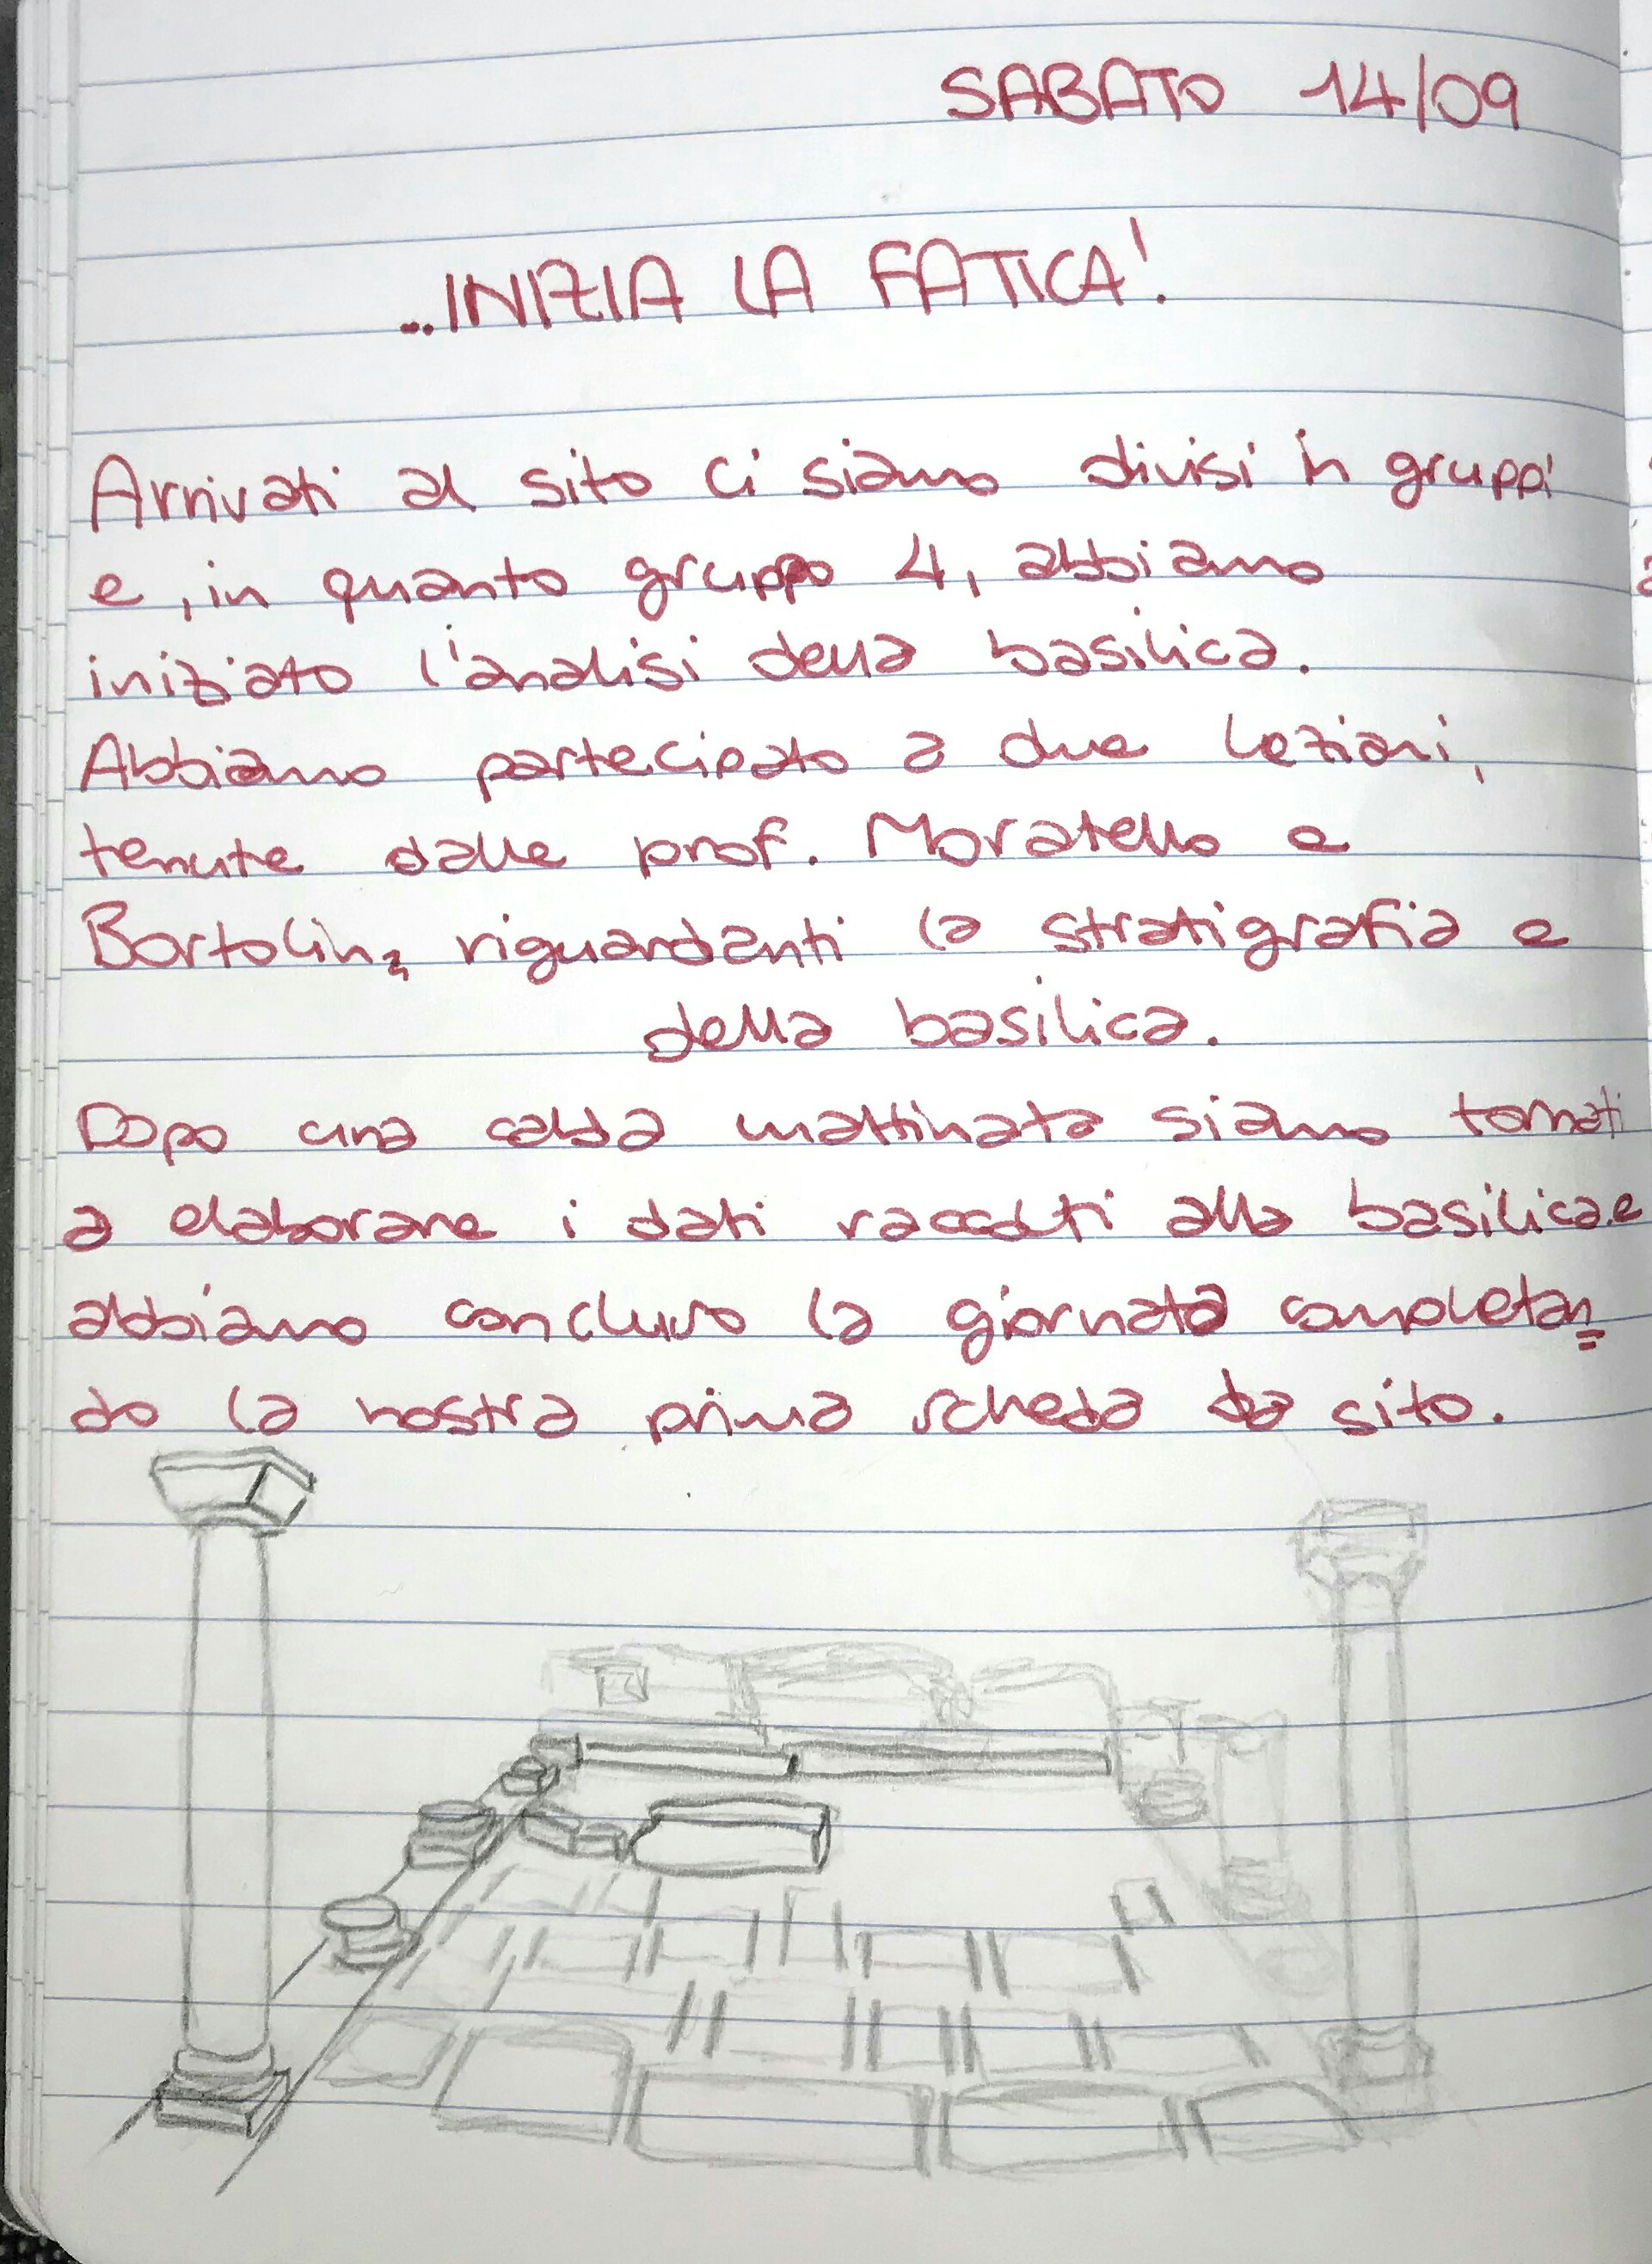 SABATO 14/09
...INIZIA LA FATICA!
Arrivati al sito ci siamo divisi in gruppi
e, in quanto gruppo 4, abbiamo
iniziato l'analisi della basilica.
Abbiamo partecipato a due lezioni,
tenute dalle prof. Moratello e
Bortolin, riguardanti la stratigrafia e
della basilica.
Dopo una calda mattinata siamo tornati
a elaborare i dati raccolti alla basilica e
abbiamo concluso la giornata completan=
do la nostra prima scheda da sito.